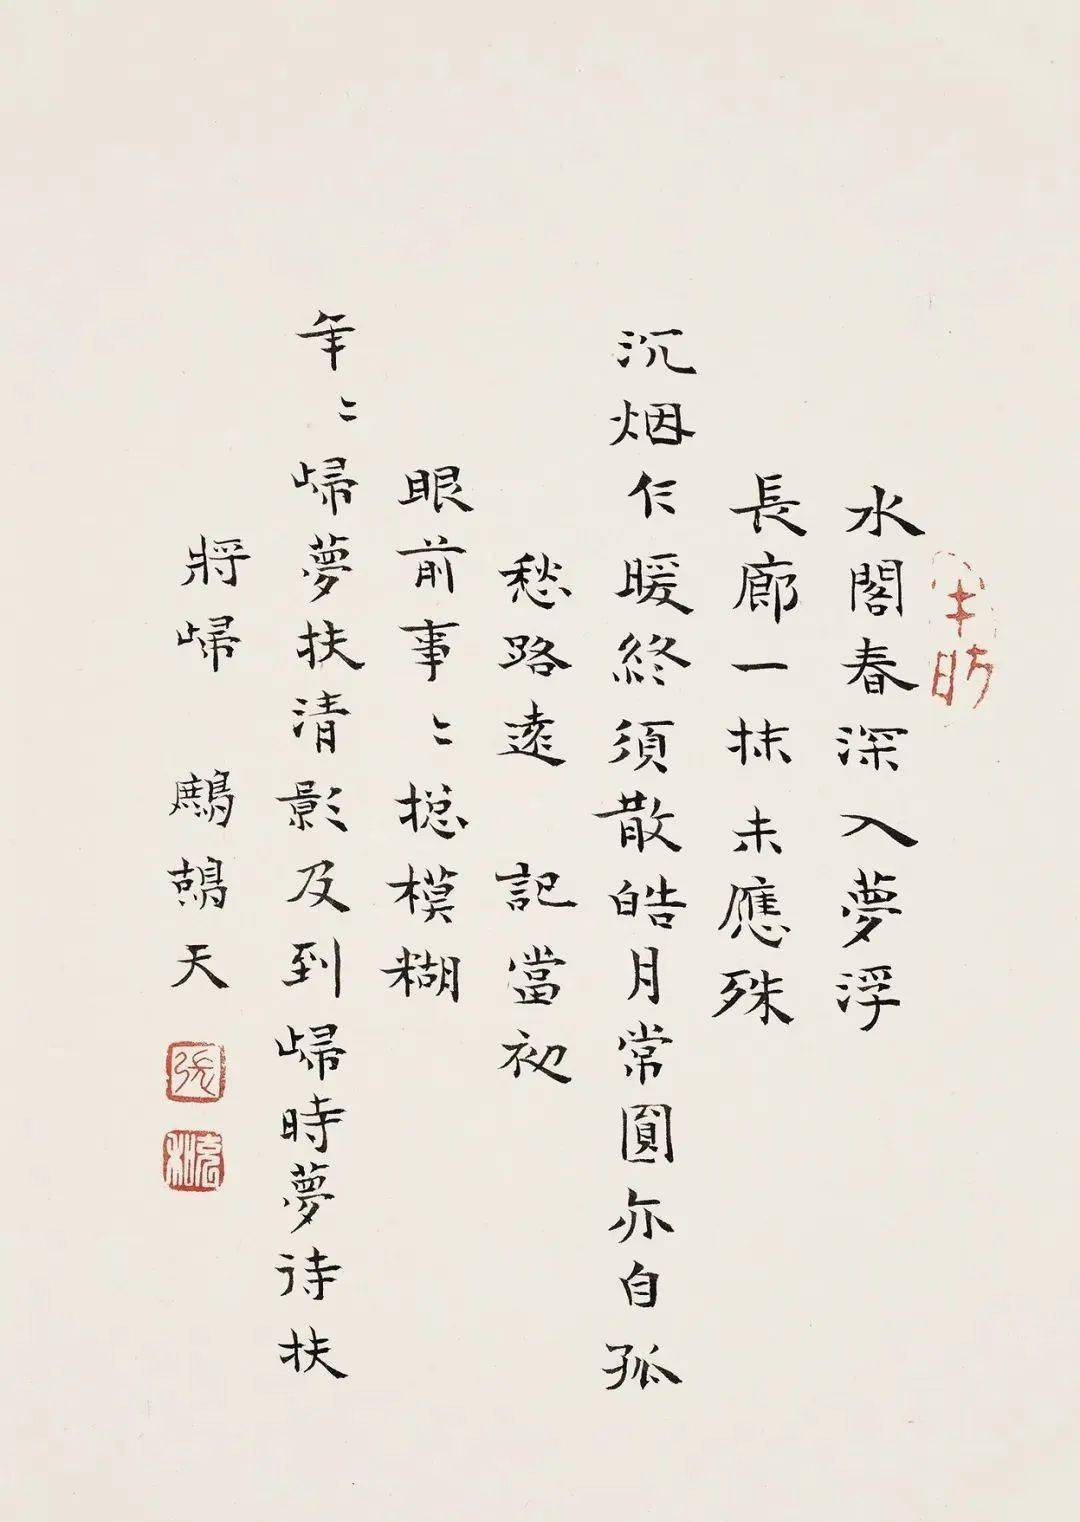 水閣春深入夢浮
長廊一抹未應殊
沉烟乍暖終須散皓月常圓亦自孤
愁路遠　記當初
眼前事〻揔模糊
年〻㱕夢扶清影及到㱕時夢待扶
將㱕　鷓鴣天
張